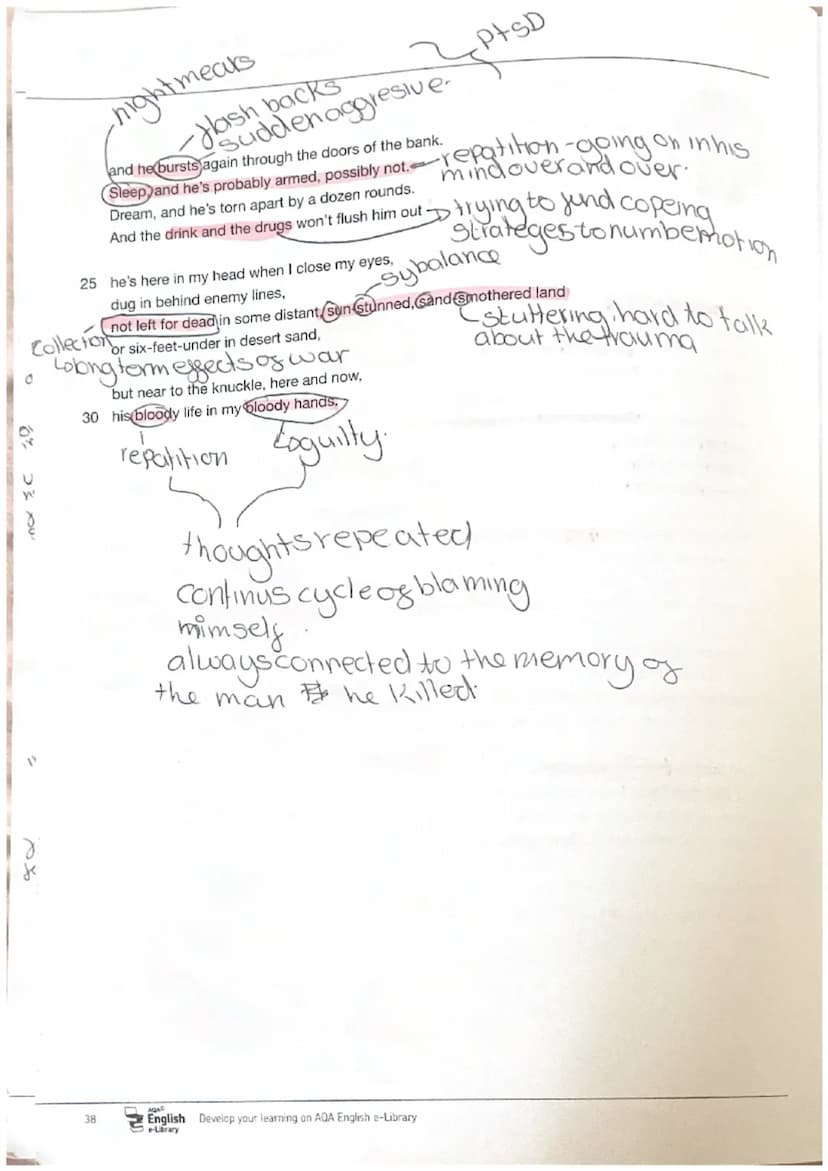 ptsD
nightmears
flash backs
sudden aggresive.
and he bursts again through the doors of the bank.
Sleep, and he's probably armed, possibly not.
repatition - going on in his
mind over and over.
Dream, and he's torn apart by a dozen rounds.
And the drink and the drugs won't flush him out
trying to find copeing
strateges to numb emotion
25 he's here in my head when I close my eyes,
dug in behind enemy lines,
sybalance
not left for dead in some distant, sun-stunned, sand-smothered land
or six-feet-under in desert sand,
stuttering, hard to talk
about the trauma
long term effects of war
but near to the knuckle, here and now,
30 his bloody life in my bloody hands.
repatition
guilty.
thoughts repeated
continus cycle of blaming
himself.
always connected to the memory of
the man he killed.
38 AQA English e-Library Develop your learning on AQA English e-Library